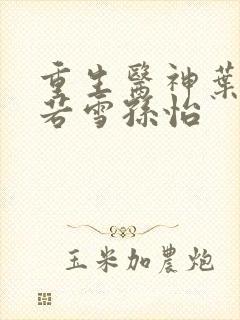 重生醫神葉
若雪孫怡
玉米加農炮